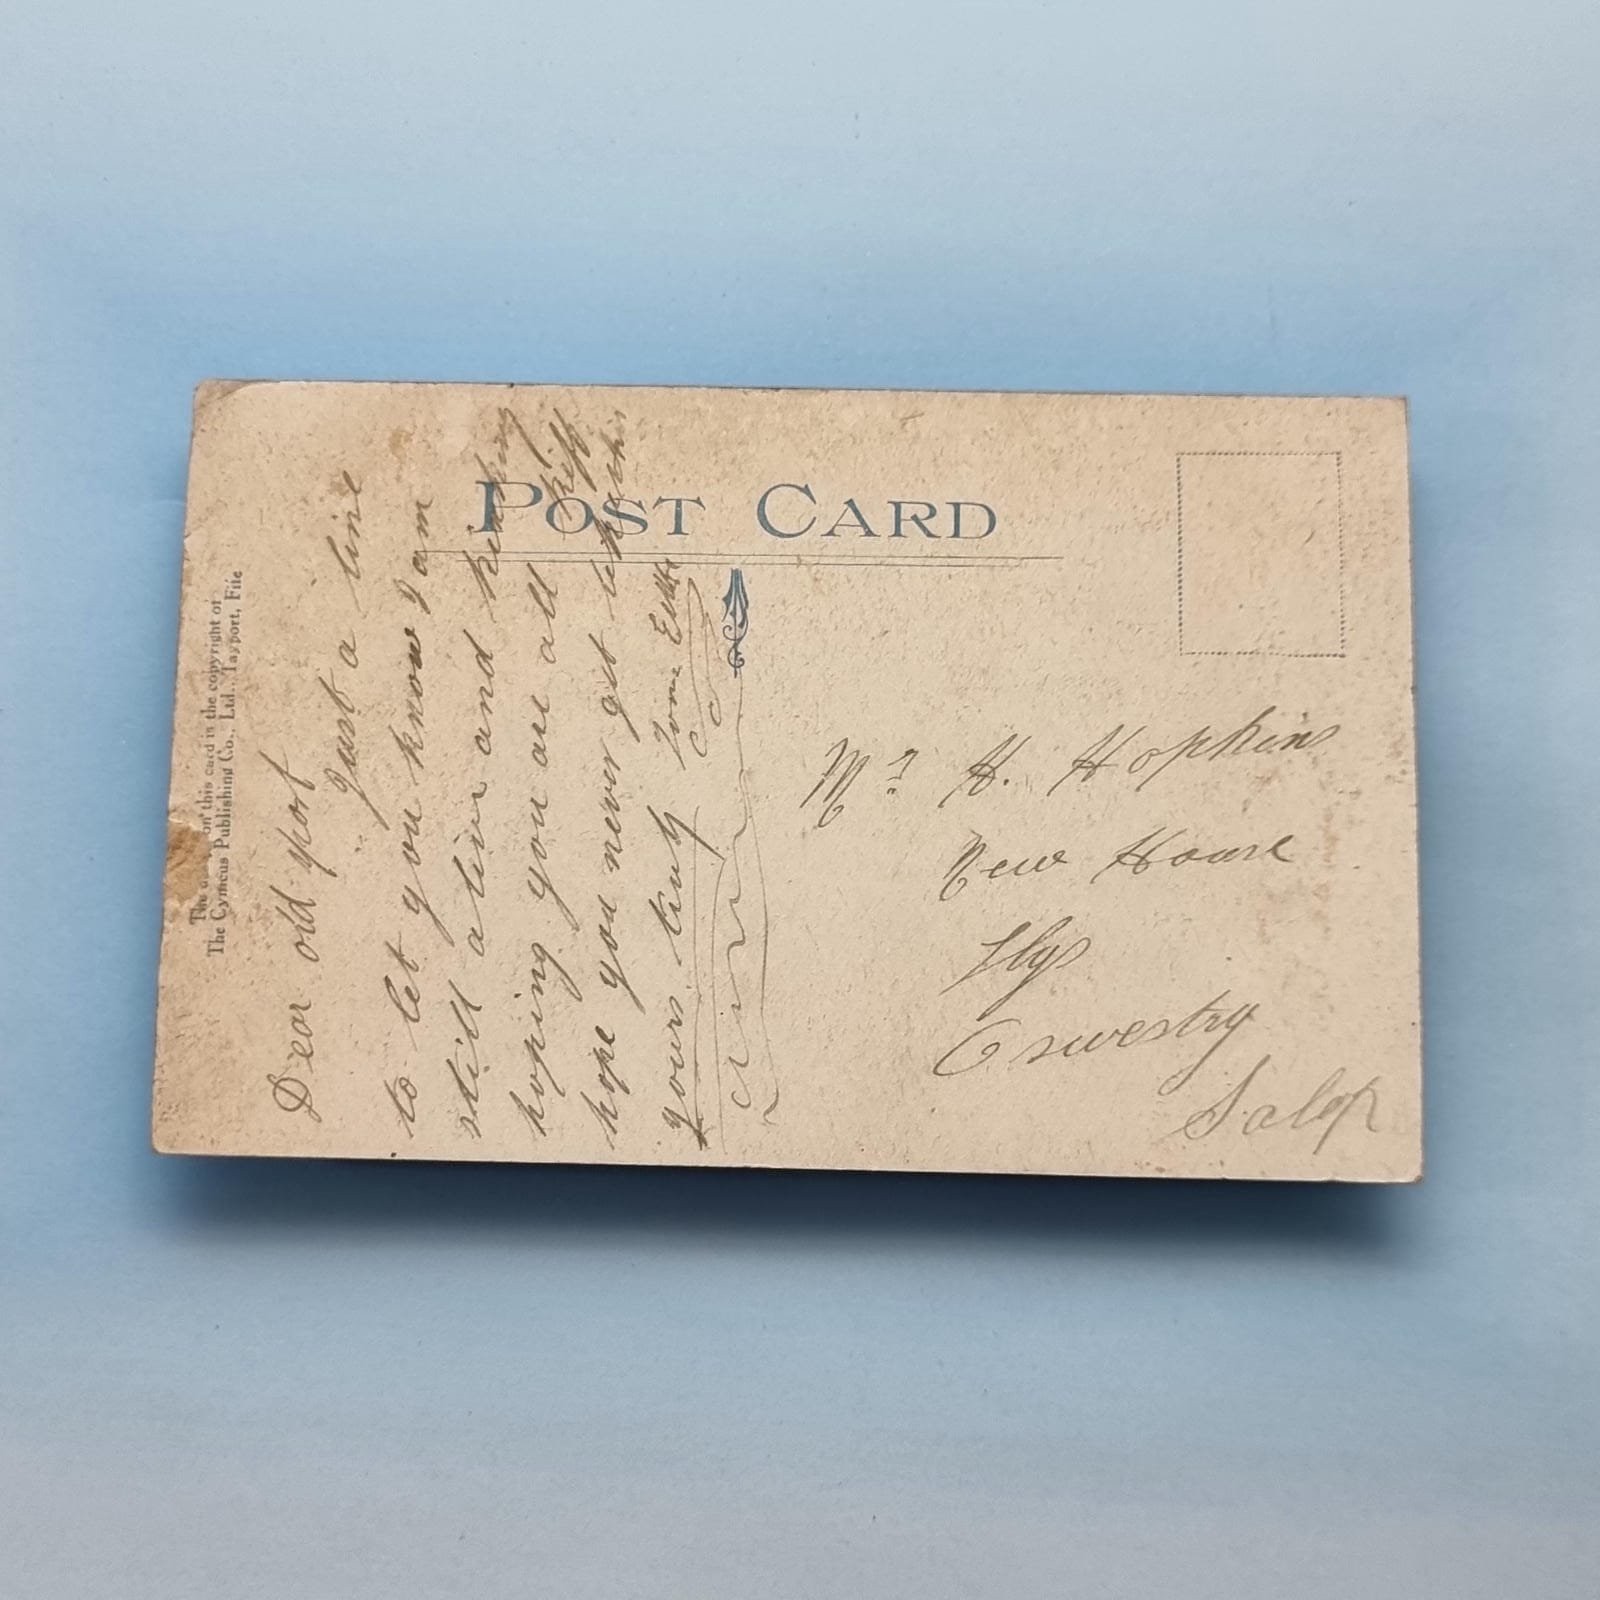 POST CARD
The on this card is the copyright of
The Cynicus Publishing Co., Ltd., Tayport, Fife
Dear old sport
Just a line
to let you know I am
still alive and kicking
hoping you are all
hope you never get like this
yours truly Tom
Mr H. Hopkins
New House
Oswestry
Salop